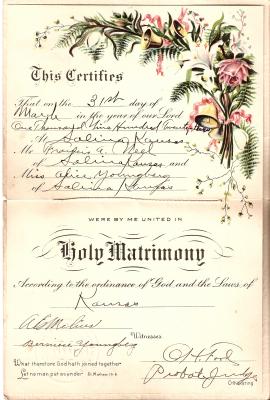 This Certifies
That on the 31st day of
May in the year of our Lord
One Thousand Nine Hundred
At Salina, Kansas
Mr. Francis A. Neel
of Salina Kansas and
Miss Alice Youngberg
of Salina Kansas
WERE BY ME UNITED IN
Holy Matrimony
According to the ordinance of God and the Laws of
Kansas
Witnesses
Bernice Youngberg
What therefore God hath joined together
Let no man put asunder St. Mathew 19-6
Probate Judge
Officiating